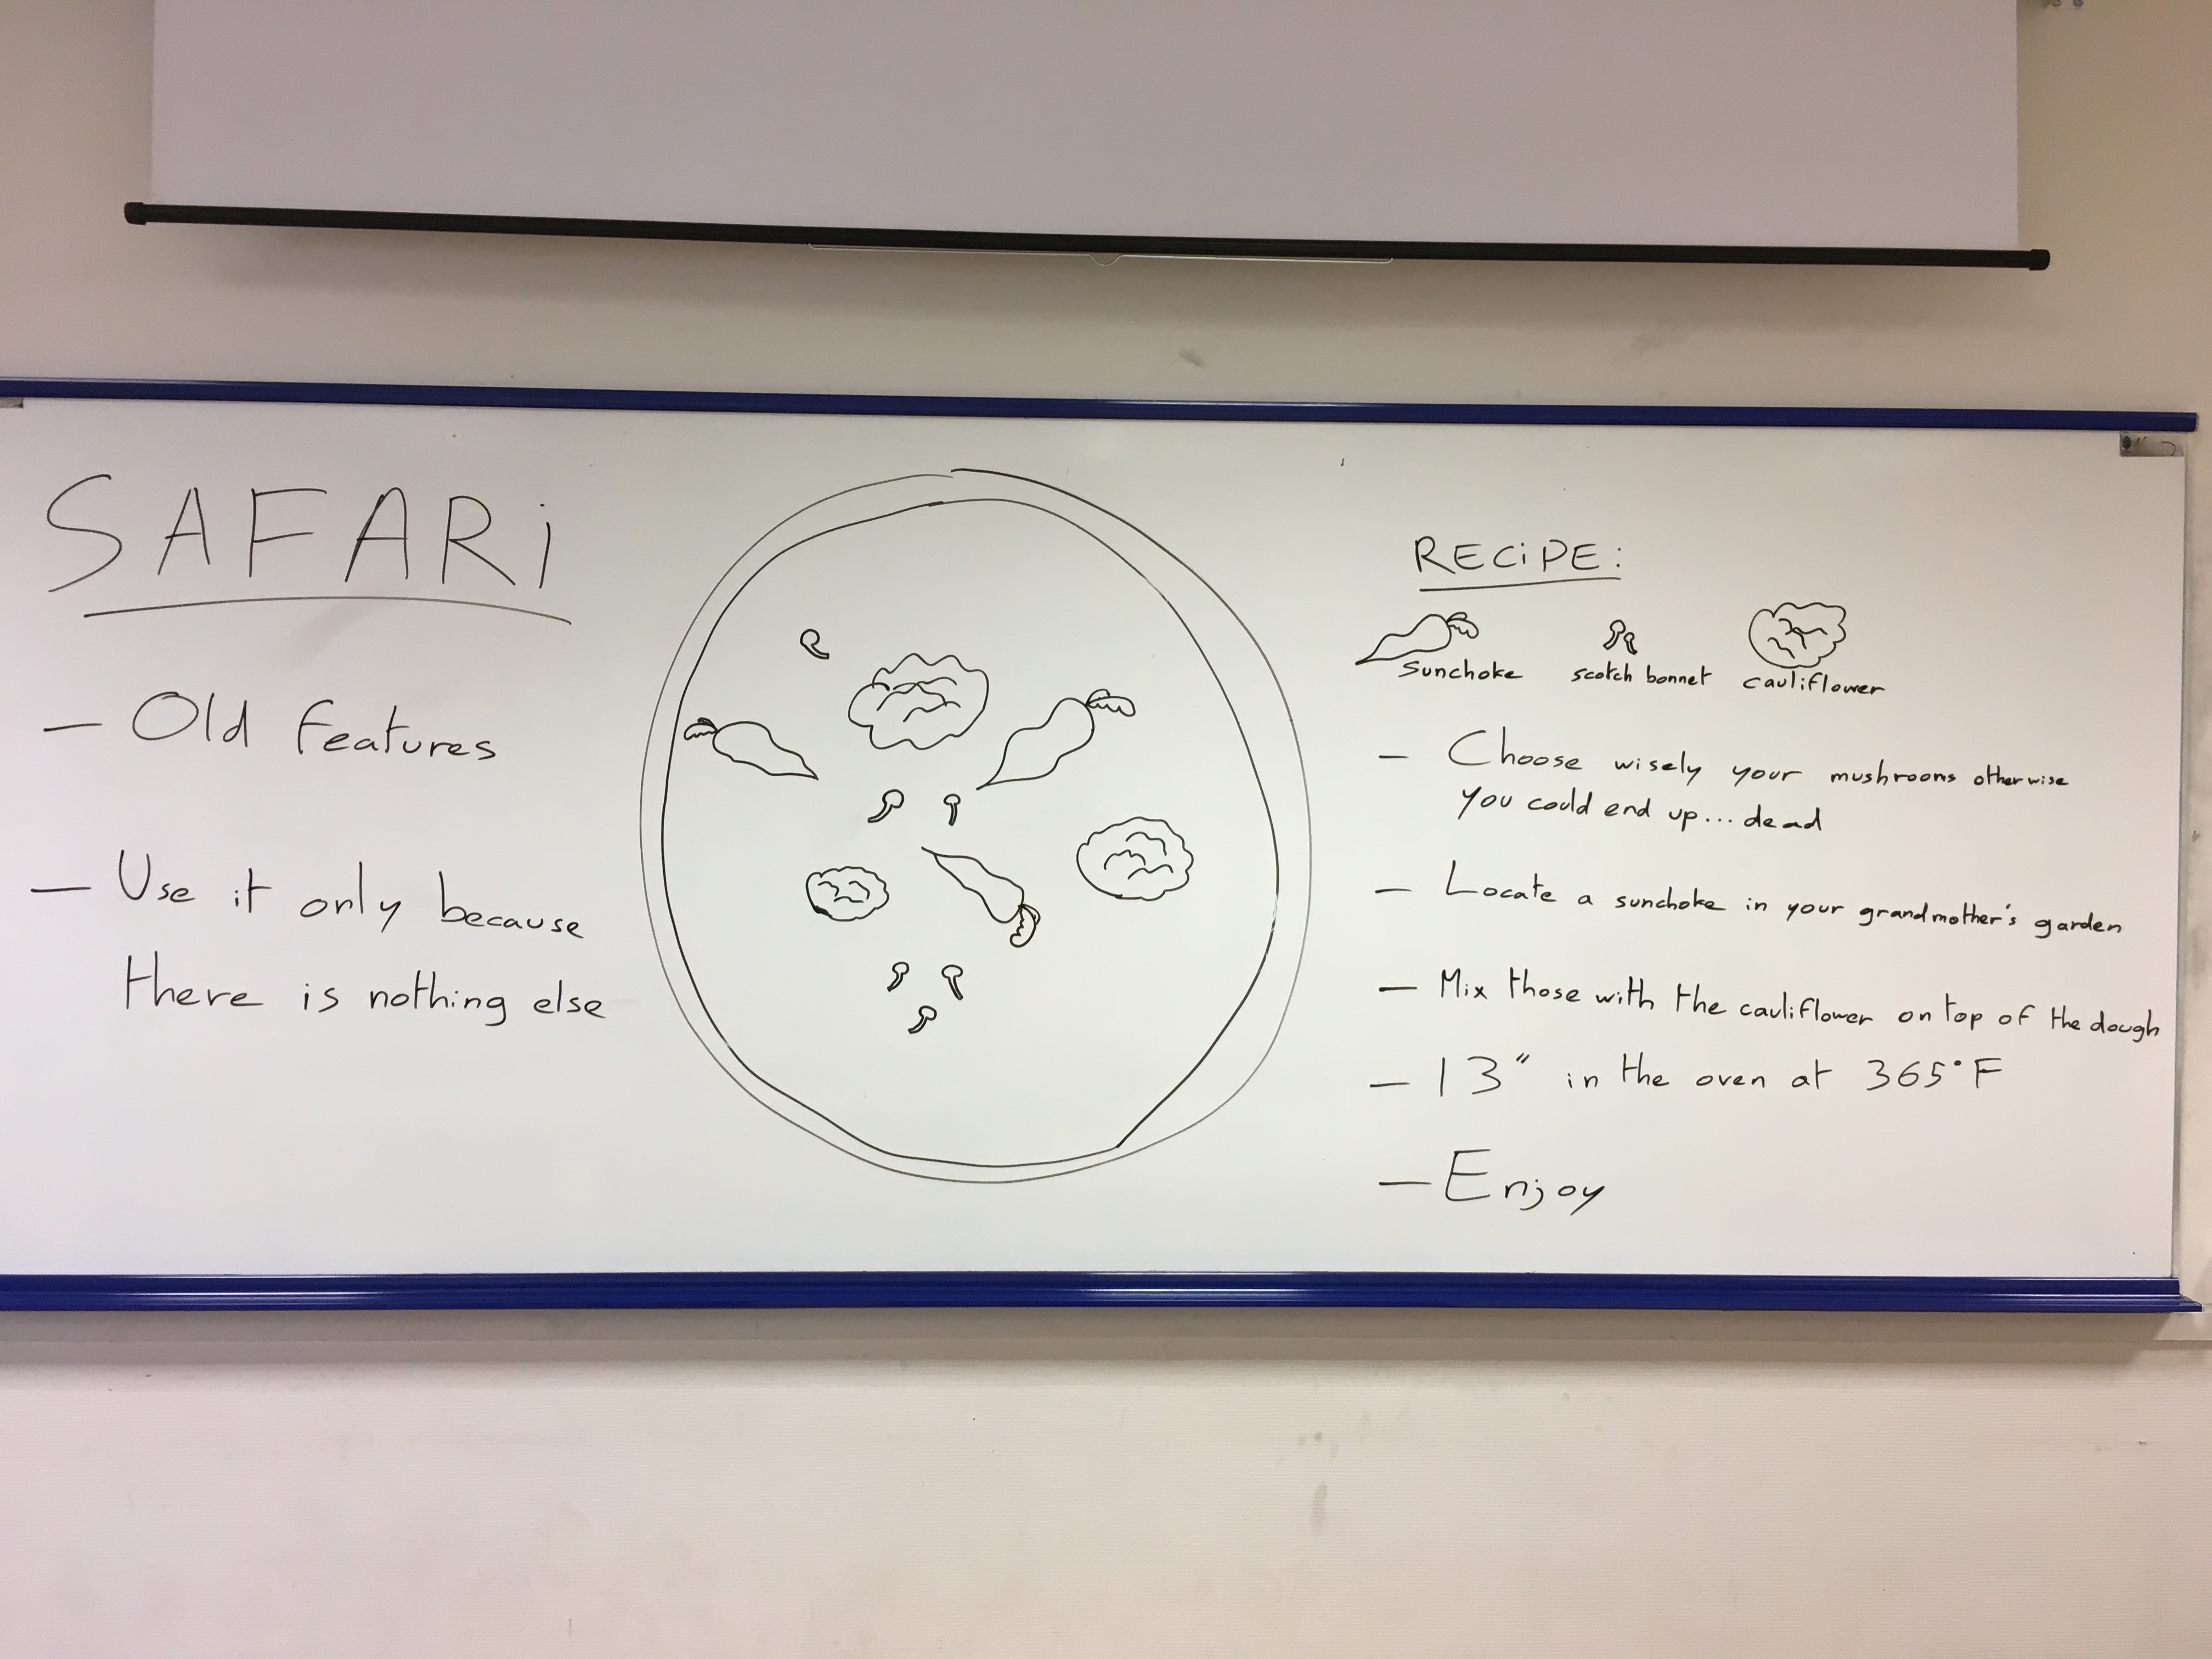 SAFARi
- Old features
- Use it only because
there is nothing else
RECiPE:
Sunchoke scotch bonnet cauliflower
- Choose wisely your mushrooms otherwise
you could end up... dead
- Locate a sunchoke in your grandmother's garden
- Mix those with the cauliflower on top of the dough
- 13" in the oven at 365°F
- Enjoy